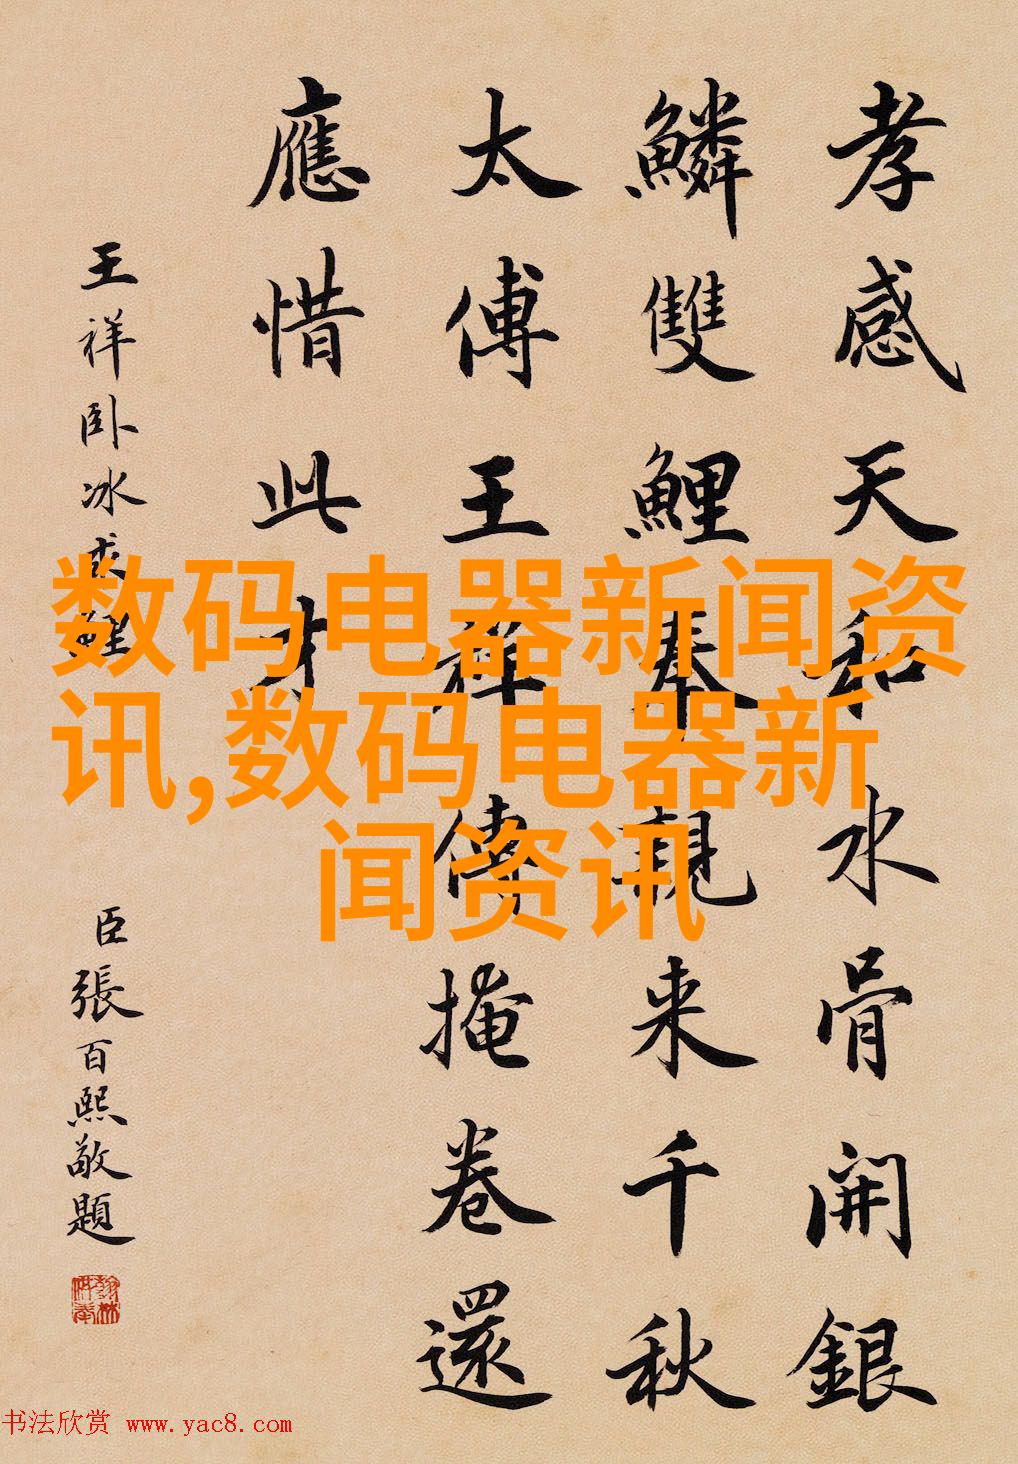 孝感天和水骨開銀
鱗雙鯉奉親来千秋
太傅王祥傳掩卷還
應惜此才
王祥卧冰求鯉
臣張百熙敬題
数码电器新闻资
讯,数码电器新
闻资讯
书法欣赏 www.yac8.com